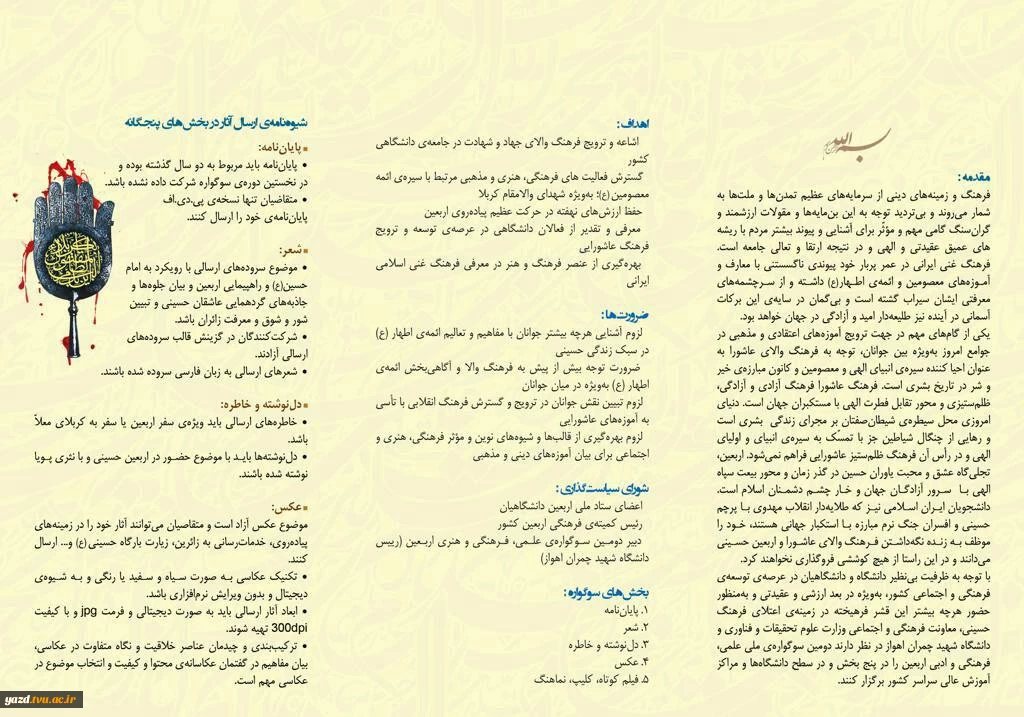 بسم الله الرحمن الرحیم
مقدمه:
فرهنگ و زمینه‌های دینی از سرمایه‌های عظیم تمدن‌ها و ملت‌ها به
شمار می‌روند و بی‌تردید توجه به این بن‌مایه‌ها و مقولات ارزشمند و
گران‌سنگ گامی مهم و مؤثّر برای آشنایی و پیوند بیشتر مردم با ریشه
های عمیق عقیدتی و الهی و در نتیجه ارتقا و تعالی جامعه است.
فرهنگ غنی ایرانی در عمر پربار خود پیوندی ناگسستنی با معارف و
آموزه‌های معصومین و ائمه‌ی اطهار(ع) داشته و از سرچشمه‌های
معرفتی ایشان سیراب گشته است و بی‌گمان در سایه‌ی این برکات
آسمانی در آینده نیز طلیعه‌دار امید و آزادگی در جهان خواهد بود.
یکی از گام‌های مهم در جهت ترویج آموزه‌های اعتقادی و مذهبی در
جوامع امروز به‌ویژه بین جوانان، توجه به فرهنگ والای عاشورا به
عنوان احیا کننده سیره‌ی انبیای الهی و معصومین و کانون مبارزه‌ی خیر
و شر در تاریخ بشری است. فرهنگ عاشورا فرهنگ آزادی و آزادگی،
ظلم‌ستیزی و محور تقابل فطرت الهی با مستکبران جهان است. دنیای
امروزی محل سیطره‌ی شیطان‌صفتان بر مجرای زندگی بشری است
و رهایی از چنگال شیاطین جز با تمسّک به سیره‌ی انبیای و اولیای
الهی و در رأس آن فرهنگ ظلم‌ستیز عاشورایی فراهم نمی‌شود. اربعین،
تجلی‌گاه عشق و محبت یاوران حسین در گذر زمان و محور بیعت سپاه
الهی با سرور آزادگان جهان و خار چشم دشمنان اسلام است.
دانشجویان ایران اسلامی نیز که طلایه‌دار انقلاب مهدوی با پرچم
حسینی و افسران جنگ نرم مبارزه با استکبار جهانی هستند، خود را
موظف به زنده نگه‌داشتن فرهنگ والای عاشورا و اربعین حسینی
می‌دانند و در این راستا از هیچ کوششی فروگذاری نخواهند کرد.
با توجه به ظرفیت بی‌نظیر دانشگاه و دانشگاهیان در عرصه‌ی توسعه‌ی
فرهنگی و اجتماعی کشور، به‌ویژه در بعد ارزشی و عقیدتی و به‌منظور
حضور هرچه بیشتر این قشر فرهیخته در زمینه‌ی اعتلای فرهنگ
حسینی، معاونت فرهنگی و اجتماعی وزارت علوم تحقیقات و فناوری و
دانشگاه شهید چمران اهواز در نظر دارند دومین سوگواره‌ی ملی علمی،
فرهنگی و ادبی اربعین را در پنج بخش و در سطح دانشگاه‌ها و مراکز
آموزش عالی سراسر کشور برگزار کنند.
اهداف:
اشاعه و ترویج فرهنگ والای جهاد و شهادت در جامعه‌ی دانشگاهی
کشور
گسترش فعالیت های فرهنگی، هنری و مذهبی مرتبط با سیره‌ی ائمه
معصومین(ع)؛ به‌ویژه شهدای والامقام کربلا
حفظ ارزش‌های نهفته در حرکت عظیم پیاده‌روی اربعین
معرفی و تقدیر از فعالان دانشگاهی در عرصه‌ی توسعه و ترویج
فرهنگ عاشورایی
بهره‌گیری از عنصر فرهنگ و هنر در معرفی فرهنگ غنی اسلامی
ایرانی
ضرورت‌ها:
لزوم آشنایی هرچه بیشتر جوانان با مفاهیم و تعالیم ائمه‌ی اطهار (ع)
در سبک زندگی حسینی
ضرورت توجه بیش از پیش به فرهنگ والا و آگاهی‌بخش ائمه‌ی
اطهار (ع) به‌ویژه در میان جوانان
لزوم تبیین نقش جوانان در ترویج و گسترش فرهنگ انقلابی با تأسی
به آموزه‌های عاشورایی
لزوم بهره‌گیری از قالب‌ها و شیوه‌های نوین و مؤثر فرهنگی، هنری و
اجتماعی برای بیان آموزه‌های دینی و مذهبی
شورای سیاست‌گذاری:
اعضای ستاد ملی اربعین دانشگاهیان
رئیس کمیته‌ی فرهنگی اربعین کشور
دبیر دومین سوگواره‌ی علمی، فرهنگی و هنری اربعین (رییس
دانشگاه شهید چمران اهواز)
بخش‌های سوگواره:
۱. پایان‌نامه
۲. شعر
۳. دل‌نوشته و خاطره
۴. عکس
۵. فیلم کوتاه، کلیپ، نماهنگ
شیوه‌نامه‌ی ارسال آثار در بخش‌های پنجگانه
▪ پایان‌نامه:
• پایان‌نامه باید مربوط به دو سال گذشته بوده و
در نخستین دوره‌ی سوگواره شرکت داده نشده باشد.
• متقاضیان تنها نسخه‌ی پی.دی.اف
پایان‌نامه‌ی خود را ارسال کنند.
▪ شعر:
• موضوع سروده‌های ارسالی با رویکرد به امام
حسین(ع) و راهپیمایی اربعین و بیان جلوه‌ها و
جاذبه‌های گردهمایی عاشقان حسینی و تبیین
شور و شوق و معرفت زائران باشد.
• شرکت‌کنندگان در گزینش قالب سروده‌های
ارسالی آزادند.
• شعرهای ارسالی به زبان فارسی سروده شده باشند.
▪ دل‌نوشته و خاطره:
• خاطره‌های ارسالی باید ویژه‌ی سفر اربعین یا سفر به کربلای معلاّ
باشد.
• دل‌نوشته‌ها باید با موضوع حضور در اربعین حسینی و با نثری پویا
نوشته شده باشند.
▪ عکس:
موضوع عکس آزاد است و متقاضیان می‌توانند آثار خود را در زمینه‌های
پیاده‌روی، خدمات‌رسانی به زائرین، زیارت بارگاه حسینی(ع) و... ارسال
کنند.
• تکنیک عکاسی به صورت سیاه و سفید یا رنگی و به شیوه‌ی
دیجیتال و بدون ویرایش نرم‌افزاری باشد.
• ابعاد آثار ارسالی باید به صورت دیجیتالی و فرمت jpg و با کیفیت
300dpi تهیه شوند.
• ترکیب‌بندی و چیدمان عناصر خلاقیت و نگاه متفاوت در عکاسی،
بیان مفاهیم در گفتمان عکاسانه‌ی محتوا و کیفیت و انتخاب موضوع در
عکاسی مهم است.
yazd.tvu.ac.ir